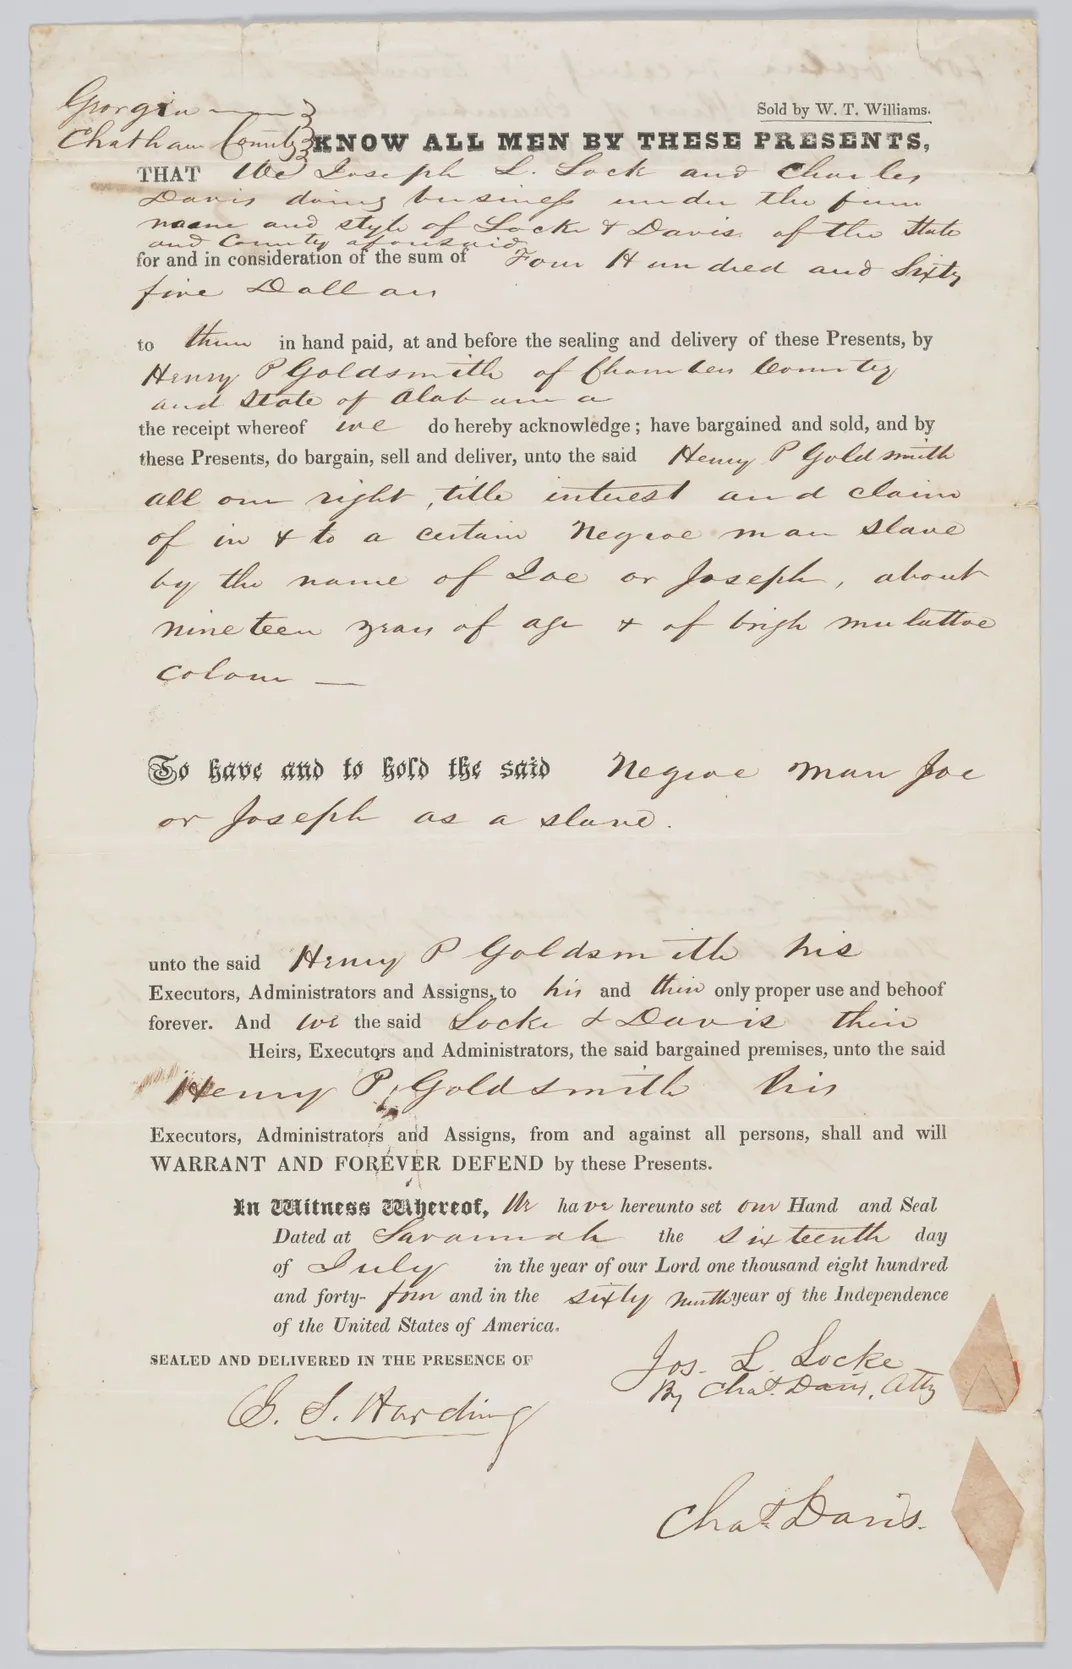 Georgia
Chatham County
Sold by W. T. Williams.
KNOW ALL MEN BY THESE PRESENTS,
THAT We Joseph L. Lock and Charles
Davis doing business under the firm
name and style of Locke & Davis of the State
and County aforesaid
for and in consideration of the sum of Four Hundred and Sixty
five Dollars
to them in hand paid, at and before the sealing and delivery of these Presents, by
Henry P Goldsmith of Chambers County
and State of Alabama
the receipt whereof we do hereby acknowledge; have bargained and sold, and by
these Presents, do bargain, sell and deliver, unto the said Henry P Goldsmith
all our right, title interest and claim
of in & to a certain Negroe man slave
by the name of Joe or Joseph, about
nineteen years of age & of brigh mulattoe
colour —
To have and to hold the said Negroe man Joe
or Joseph as a slave.
unto the said Henry P Goldsmith his
Executors, Administrators and Assigns, to his and their only proper use and behoof
forever. And we the said Locke & Davis their
Heirs, Executors and Administrators, the said bargained premises, unto the said
Henry P. Goldsmith his
Executors, Administrators and Assigns, from and against all persons, shall and will
WARRANT AND FOREVER DEFEND by these Presents.
In Witness Whereof, We have hereunto set our Hand and Seal
Dated at Savannah the sixteenth day
of July in the year of our Lord one thousand eight hundred
and forty-four and in the sixty ninth year of the Independence
of the United States of America.
SEALED AND DELIVERED IN THE PRESENCE OF
Jos. L. Locke
By Chas. Davis, Atty
S. Harding
Chas. Davis.